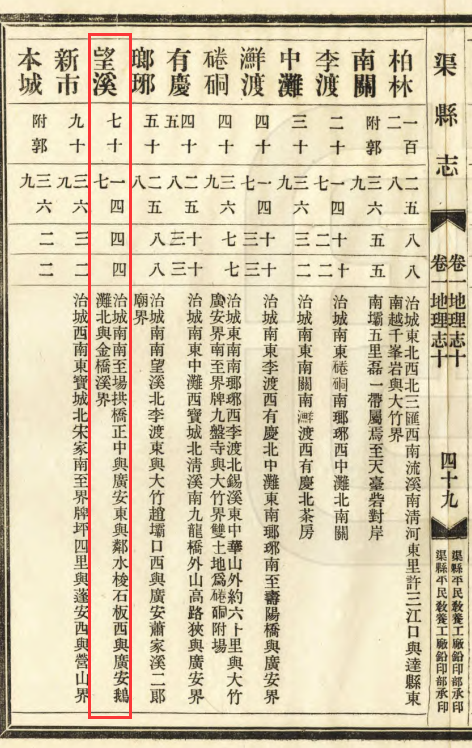 渠縣志
卷一地理志十
卷一地理志十
四十九
渠縣平民教養工廠鉛印部承印
渠縣平民教養工廠鉛印部承印
柏林
一百二
二五八
八
八
治城東北西北三匯西南流溪南清河東里許三江口與達縣東
南越千峯岩與大竹界
南關
附郭
三六九
五
五
南壩五里磊一帶屬焉至天臺砦對岸
李渡
二十
一四七
十二
十二
治城南東硐南瑯琊西中灘北南關
中灘
三十
三六九
三
二
治城南東南關南鮮渡西有慶北茶房
鮮渡
四十
一四七
十三
十三
治城南東李渡西有慶北中灘東南瑯琊南至壽陽橋與廣安界
硐
四十
三六九
七
七
治城東南南瑯琊西李渡北錫溪東中華山外約六十里與大竹
廣安界南至界牌九盤寺與大竹界雙土地爲硐附場
有慶
四十五
二五八
十三
十三
治城南東中灘西寶城北清溪南九龍橋外山高路狹與廣安界
瑯琊
五十
二五八
八
八
治城南南望溪北李渡東與大竹趙壩口西與廣安蕭家溪二郎
廟界
望溪
七十
一四七
四
四
治城南南至場拱橋正中與廣安東與鄰水梭石板西與廣安鵝
灘北與金橋溪界
新市
九十
三六九
三
二
治城西南東寶城北宋家南至界牌坪四里與蓬安西與營山界
本城
附郭
三六九
二
二